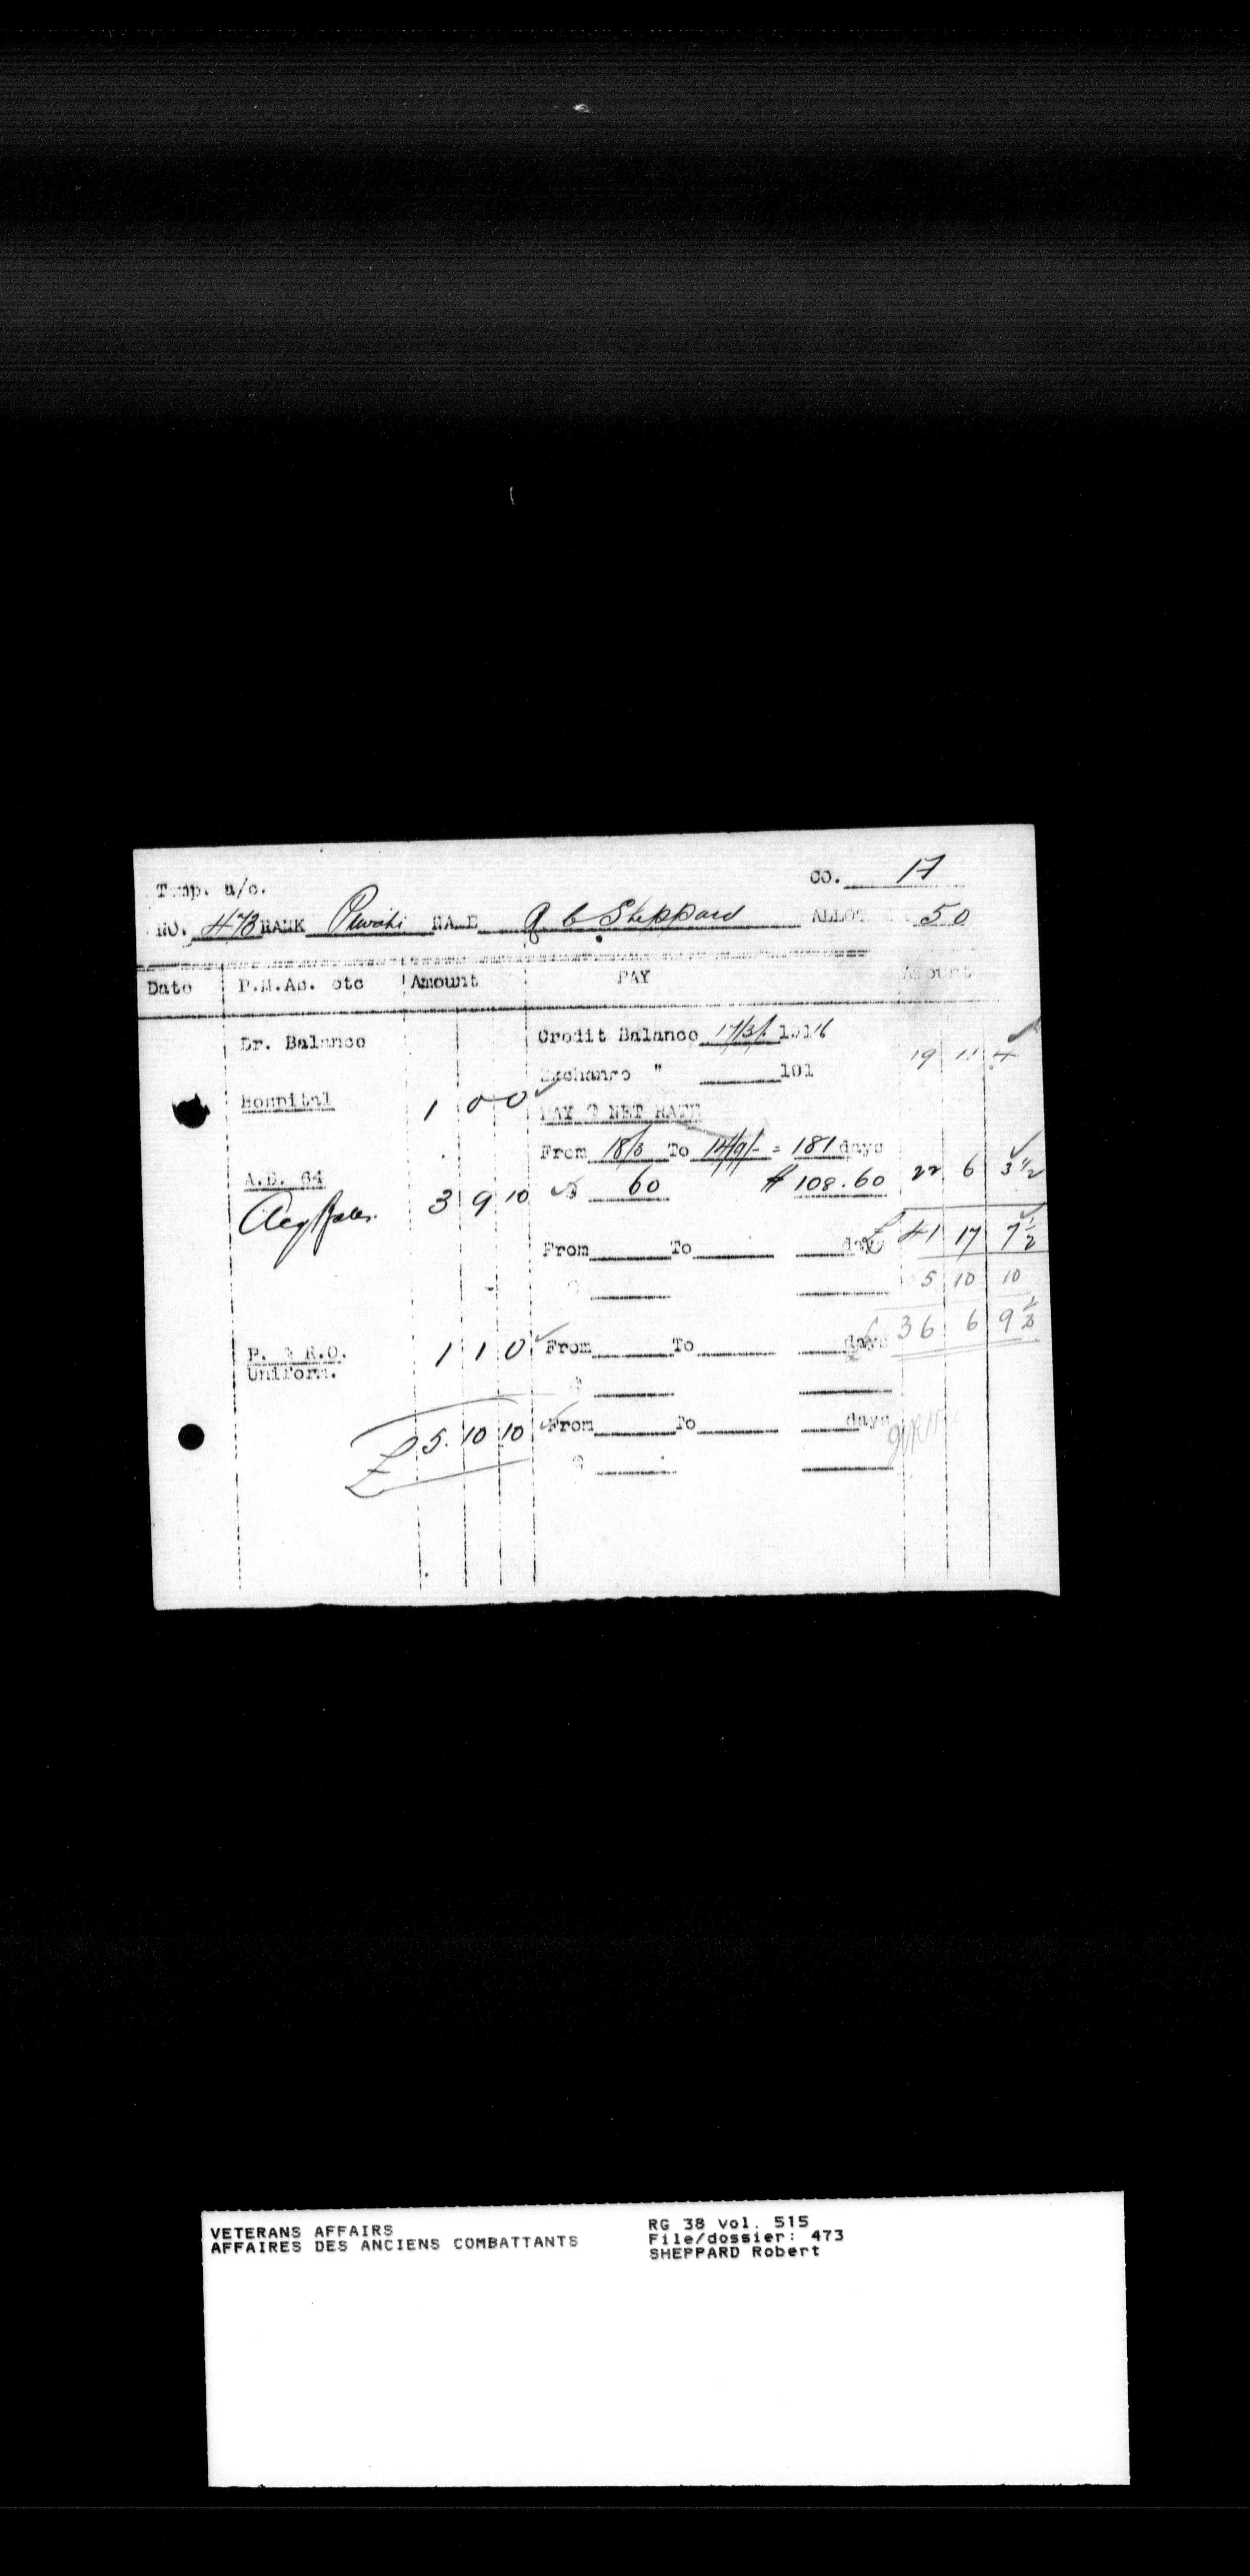 Temp. a/c. CO. 17
NO. 473 RANK Private NAME R C Sheppard ALLOT 50
Date P.M.As. etc Amount PAY Amount
Dr. Balance Credit Balance 17/3/ 1916 19 11 4
Exchange " 191
Hospital 1 0 0 PAY @ NET RATE
From 18/3 To 14/9/- = 181 days
A.B. 64 @ 60 $ 108.60 22 6 3 1/2
3 9 10
From To days £ 41 17 7 1/2
@ 5 10 10
P. & R.O. 1 1 0 From To days £ 36 6 9 1/2
Uniform.
@
£ 5. 10 10 From To days
@
VETERANS AFFAIRS RG 38 vol. 515
AFFAIRES DES ANCIENS COMBATTANTS File/dossier: 473
SHEPPARD Robert